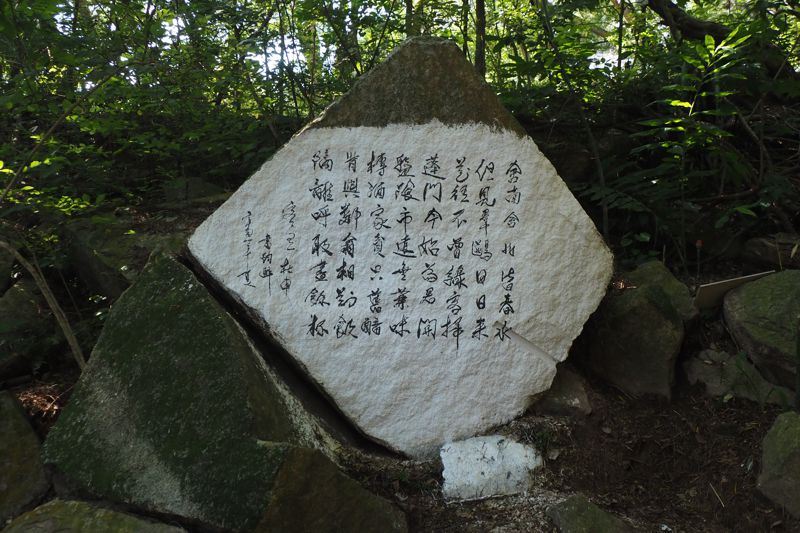 舍南舍北皆春水
但見羣鷗日日来
花径不曾緣客掃
蓬門今始為君開
盤飧市遠無兼味
樽酒家貧只舊醅
肯與鄰翁相對飲
隔籬呼取盡餘杯
客至 杜甫